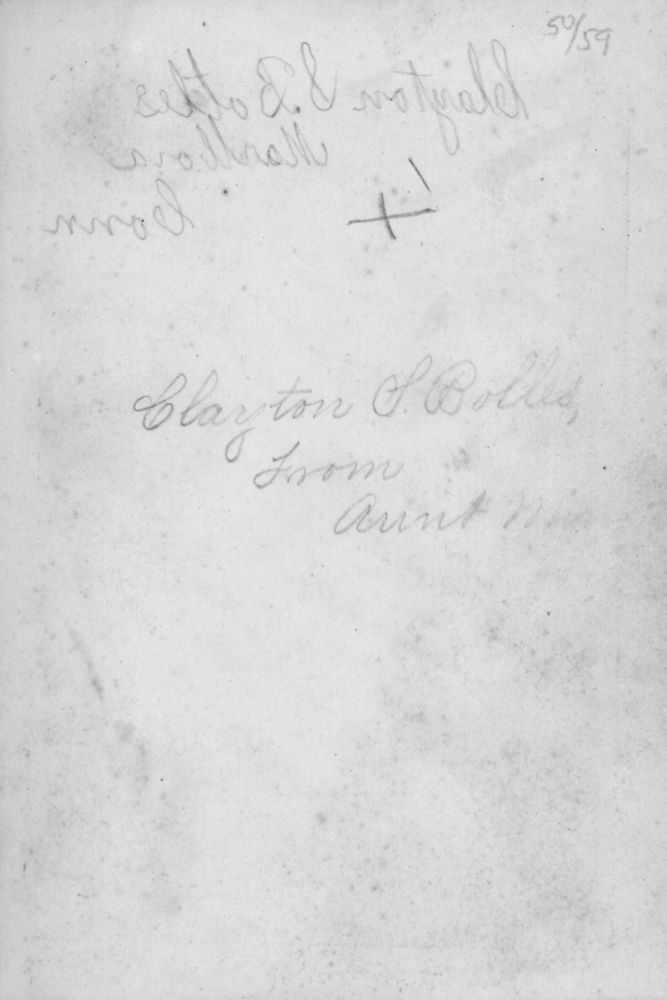 50/59
Clayton S. Bolles
Marlboro
Conn
Clayton S. Bolles,
From
Aunt